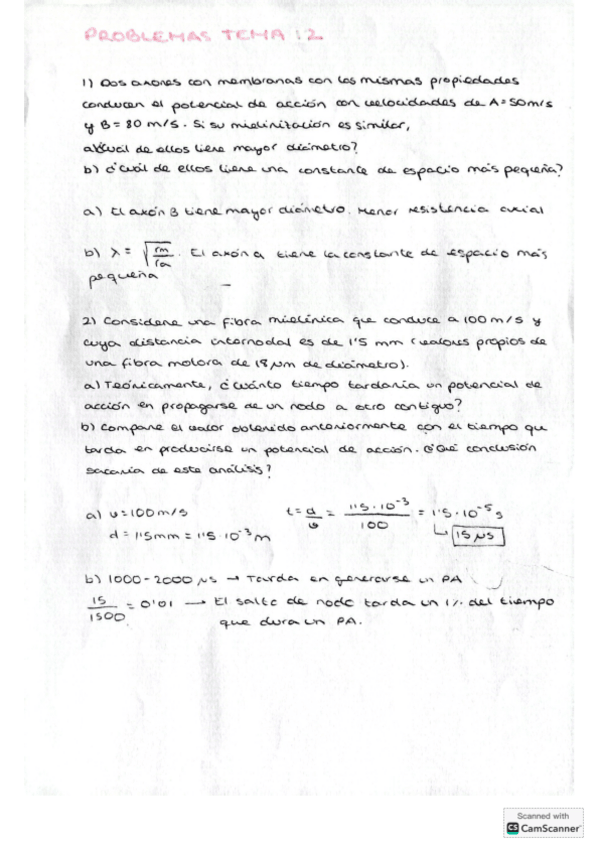 PROBLEMAS TEMA 12
1) Dos axones con membranas con las mismas propiedades
conducen el potencial de acción con velocidades de A=50m/s
y B= 80 m/s. Si su mielinización es similar,
a) ¿Cuál de ellos tiene mayor diámetro?
b) ¿Cuál de ellos tiene una constante de espacio más pequeña?
a) El axón B tiene mayor diámetro. Menor resistencia axial
b) λ = √(rm/ra). El axón A tiene la constante de espacio más
pequeña
2) Considere una fibra mielínica que conduce a 100 m/s y
cuya distancia internodal es de 1'5 mm (valores propios de
una fibra motora de 18 μm de diámetro).
a) Teóricamente, ¿cuánto tiempo tardaría un potencial de
acción en propagarse de un nodo a otro contiguo?
b) Compare el valor obtenido anteriormente con el tiempo que
tarda en producirse un potencial de acción. ¿Qué conclusión
sacaría de este análisis?
a) v=100m/s t= d/v = 1'5·10⁻³/100 = 1'5·10⁻⁵ s
d= 1'5mm = 1'5·10⁻³ m ↳ 15 μs
b) 1000-2000 μs → Tarda en generarse un PA
15/1500 = 0'01 → El salto de nodo tarda un 1% del tiempo
que dura un PA.
Scanned with
CS CamScanner